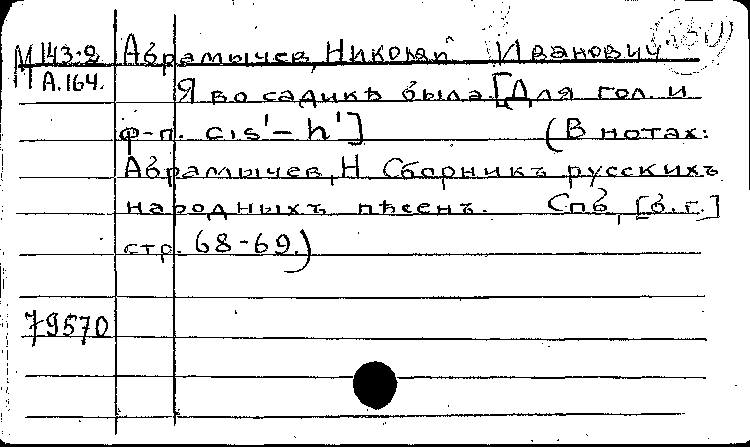 М 143:2 Абрамычев, Николай Иванович
М А.164. Я во садикѣ была [Для гол. и
ф-п. cis'–h'] (В нотах:
Абрамычев, Н. Сборникъ русскихъ
народныхъ пѣсенъ. Спб, [б.г.]
стр. 68-69.)
79570